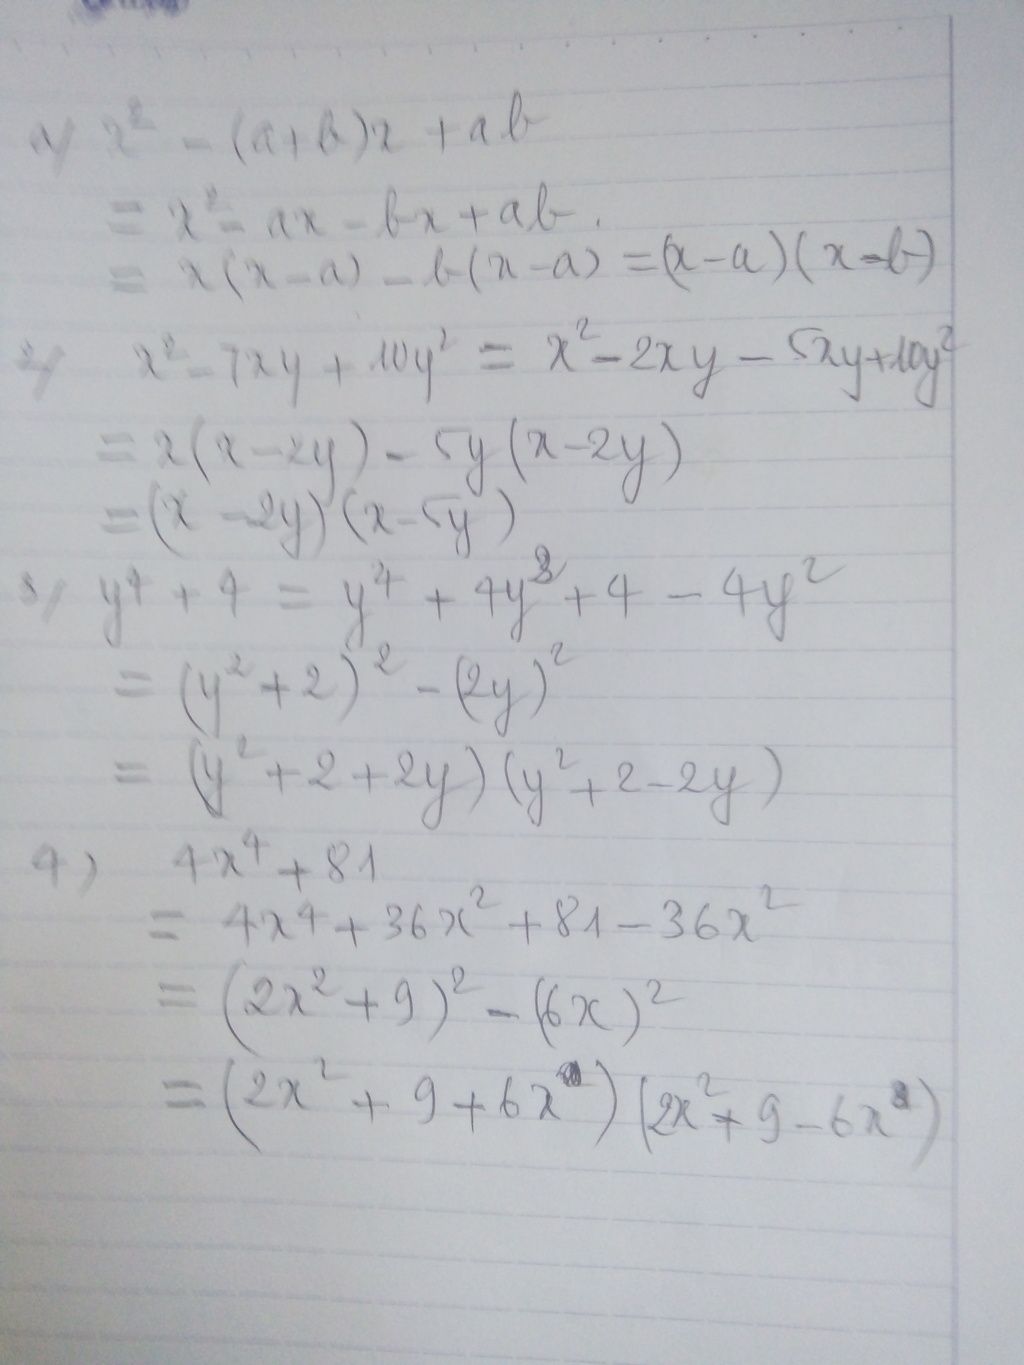 1/ x² - (a+b)x + ab
= x² - ax - bx + ab.
= x(x-a) - b(x-a) = (x-a)(x-b)
2/ x² - 7xy + 10y² = x² - 2xy - 5xy + 10y²
= x(x-2y) - 5y(x-2y)
= (x-2y)(x-5y)
3/ y⁴ + 4 = y⁴ + 4y² + 4 - 4y²
= (y²+2)² - (2y)²
= (y²+2+2y)(y²+2-2y)
4) 4x⁴ + 81
= 4x⁴ + 36x² + 81 - 36x²
= (2x²+9)² - (6x)²
= (2x² + 9 + 6x)(2x² + 9 - 6x)